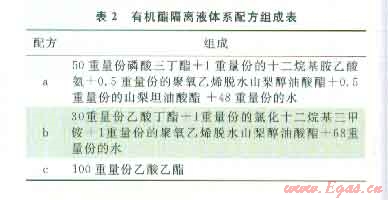 表 2 有机酯隔离液体系配方组成表
配方
组成
50重量份磷酸三丁酯+1重量份的十二烷基胺乙酸
a
氨+0.5重量份的聚氧乙烯脱水山梨醇油酸酯+0.5
重量份的山梨坦油酸酯 +48重量份的水
30重量份乙酸丁酯+1重量份的氯化十二烷基三甲
b
铵+1重量份的聚氧乙烯脱水山梨醇油酸酯+68重
量份的水
c
100重量份乙酸乙酯
www.Egas.cn